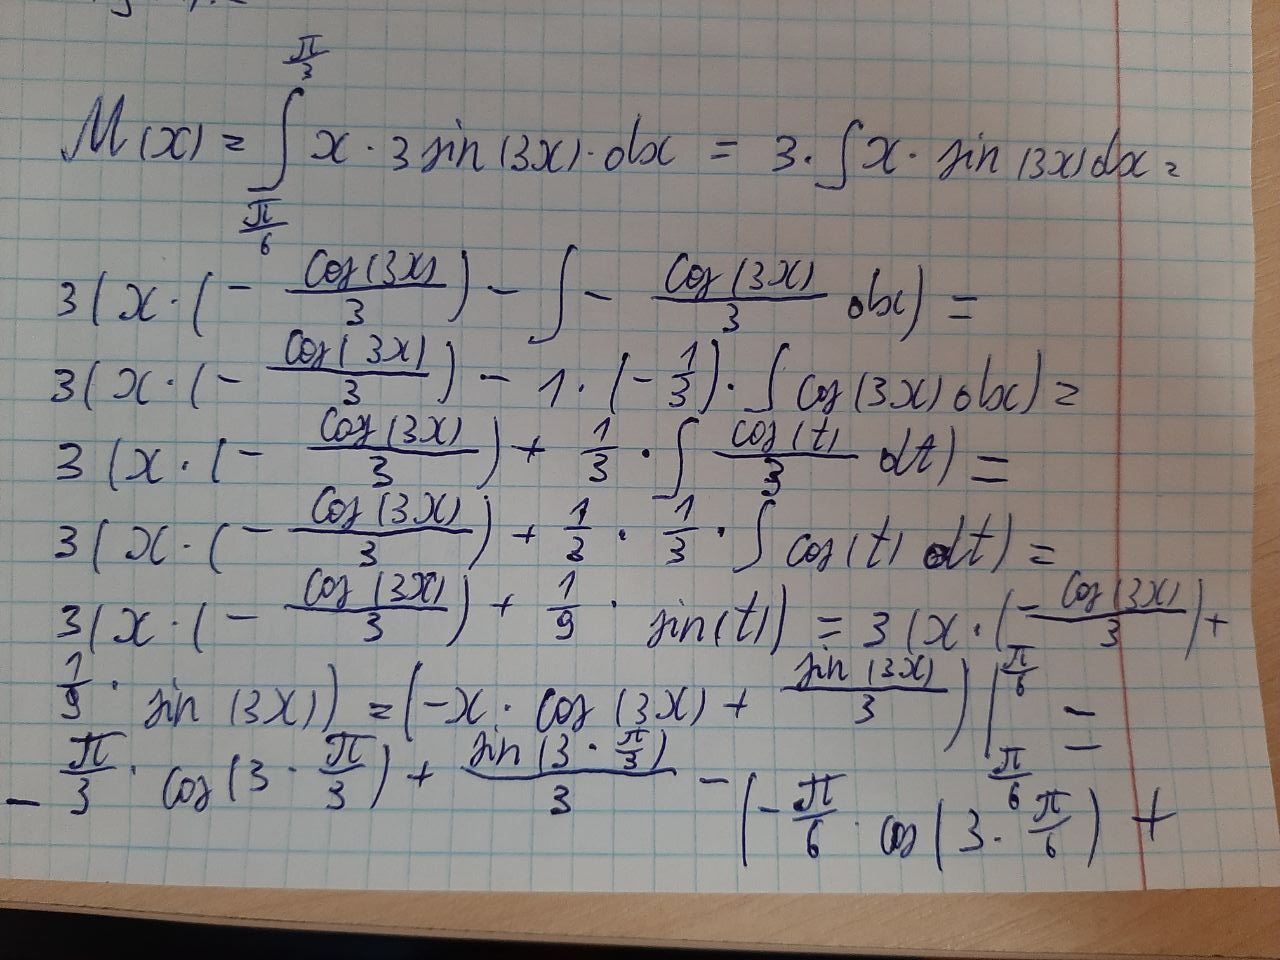 M(x) = ∫_{π/6}^{π/3} x · 3 sin(3x) · dx = 3 · ∫ x · sin(3x) dx =
3(x · (- cos(3x)/3) - ∫ - cos(3x)/3 dx) =
3(x · (- cos(3x)/3) - 1 · (- 1/3) · ∫ cos(3x) dx) =
3(x · (- cos(3x)/3) + 1/3 · ∫ cos(t)/3 dt) =
3(x · (- cos(3x)/3) + 1/3 · 1/3 · ∫ cos(t) dt) =
3(x · (- cos(3x)/3) + 1/9 · sin(t)) = 3(x · (- cos(3x)/3) +
1/9 · sin(3x)) = (-x · cos(3x) + sin(3x)/3) |_{π/6}^{π/6} =
- π/3 · cos(3 · π/3) + sin(3 · π/3)/3 - (- π/6 · cos(3 · π/6) +